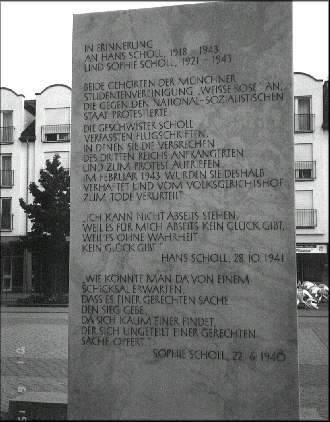 IN ERINNERUNG
AN HANS SCHOLL, 1918 - 1943
UND SOPHIE SCHOLL, 1921 - 1943
BEIDE GEHÖRTEN DER MÜNCHNER
STUDENTENVEREINIGUNG „WEISSE ROSE" AN,
DIE GEGEN DEN NATIONAL-SOZIALISTISCHEN
STAAT PROTESTIERTE.
DIE GESCHWISTER SCHOLL
VERFASSTEN FLUGSCHRIFTEN,
IN DENEN SIE DIE VERBRECHEN
DES DRITTEN REICHS ANPRANGERTEN
UND ZUM PROTEST AUFRIEFEN.
IM FEBRUAR 1943 WURDEN SIE DESHALB
VERHAFTET UND VOM VOLKSGERICHTSHOF
ZUM TODE VERURTEILT.
„ICH KANN NICHT ABSEITS STEHEN,
WEIL ES FÜR MICH ABSEITS KEIN GLÜCK GIBT,
WEIL ES OHNE WAHRHEIT
KEIN GLÜCK GIBT."
HANS SCHOLL, 28. 10. 1941
„WIE KÖNNTE MAN DA VON EINEM
SCHICKSAL ERWARTEN,
DASS ES EINER GERECHTEN SACHE
DEN SIEG GEBE,
DA SICH KAUM EINER FINDET,
DER SICH UNGETEILT EINER GERECHTEN
SACHE OPFERT."
SOPHIE SCHOLL, 22. 6. 1940